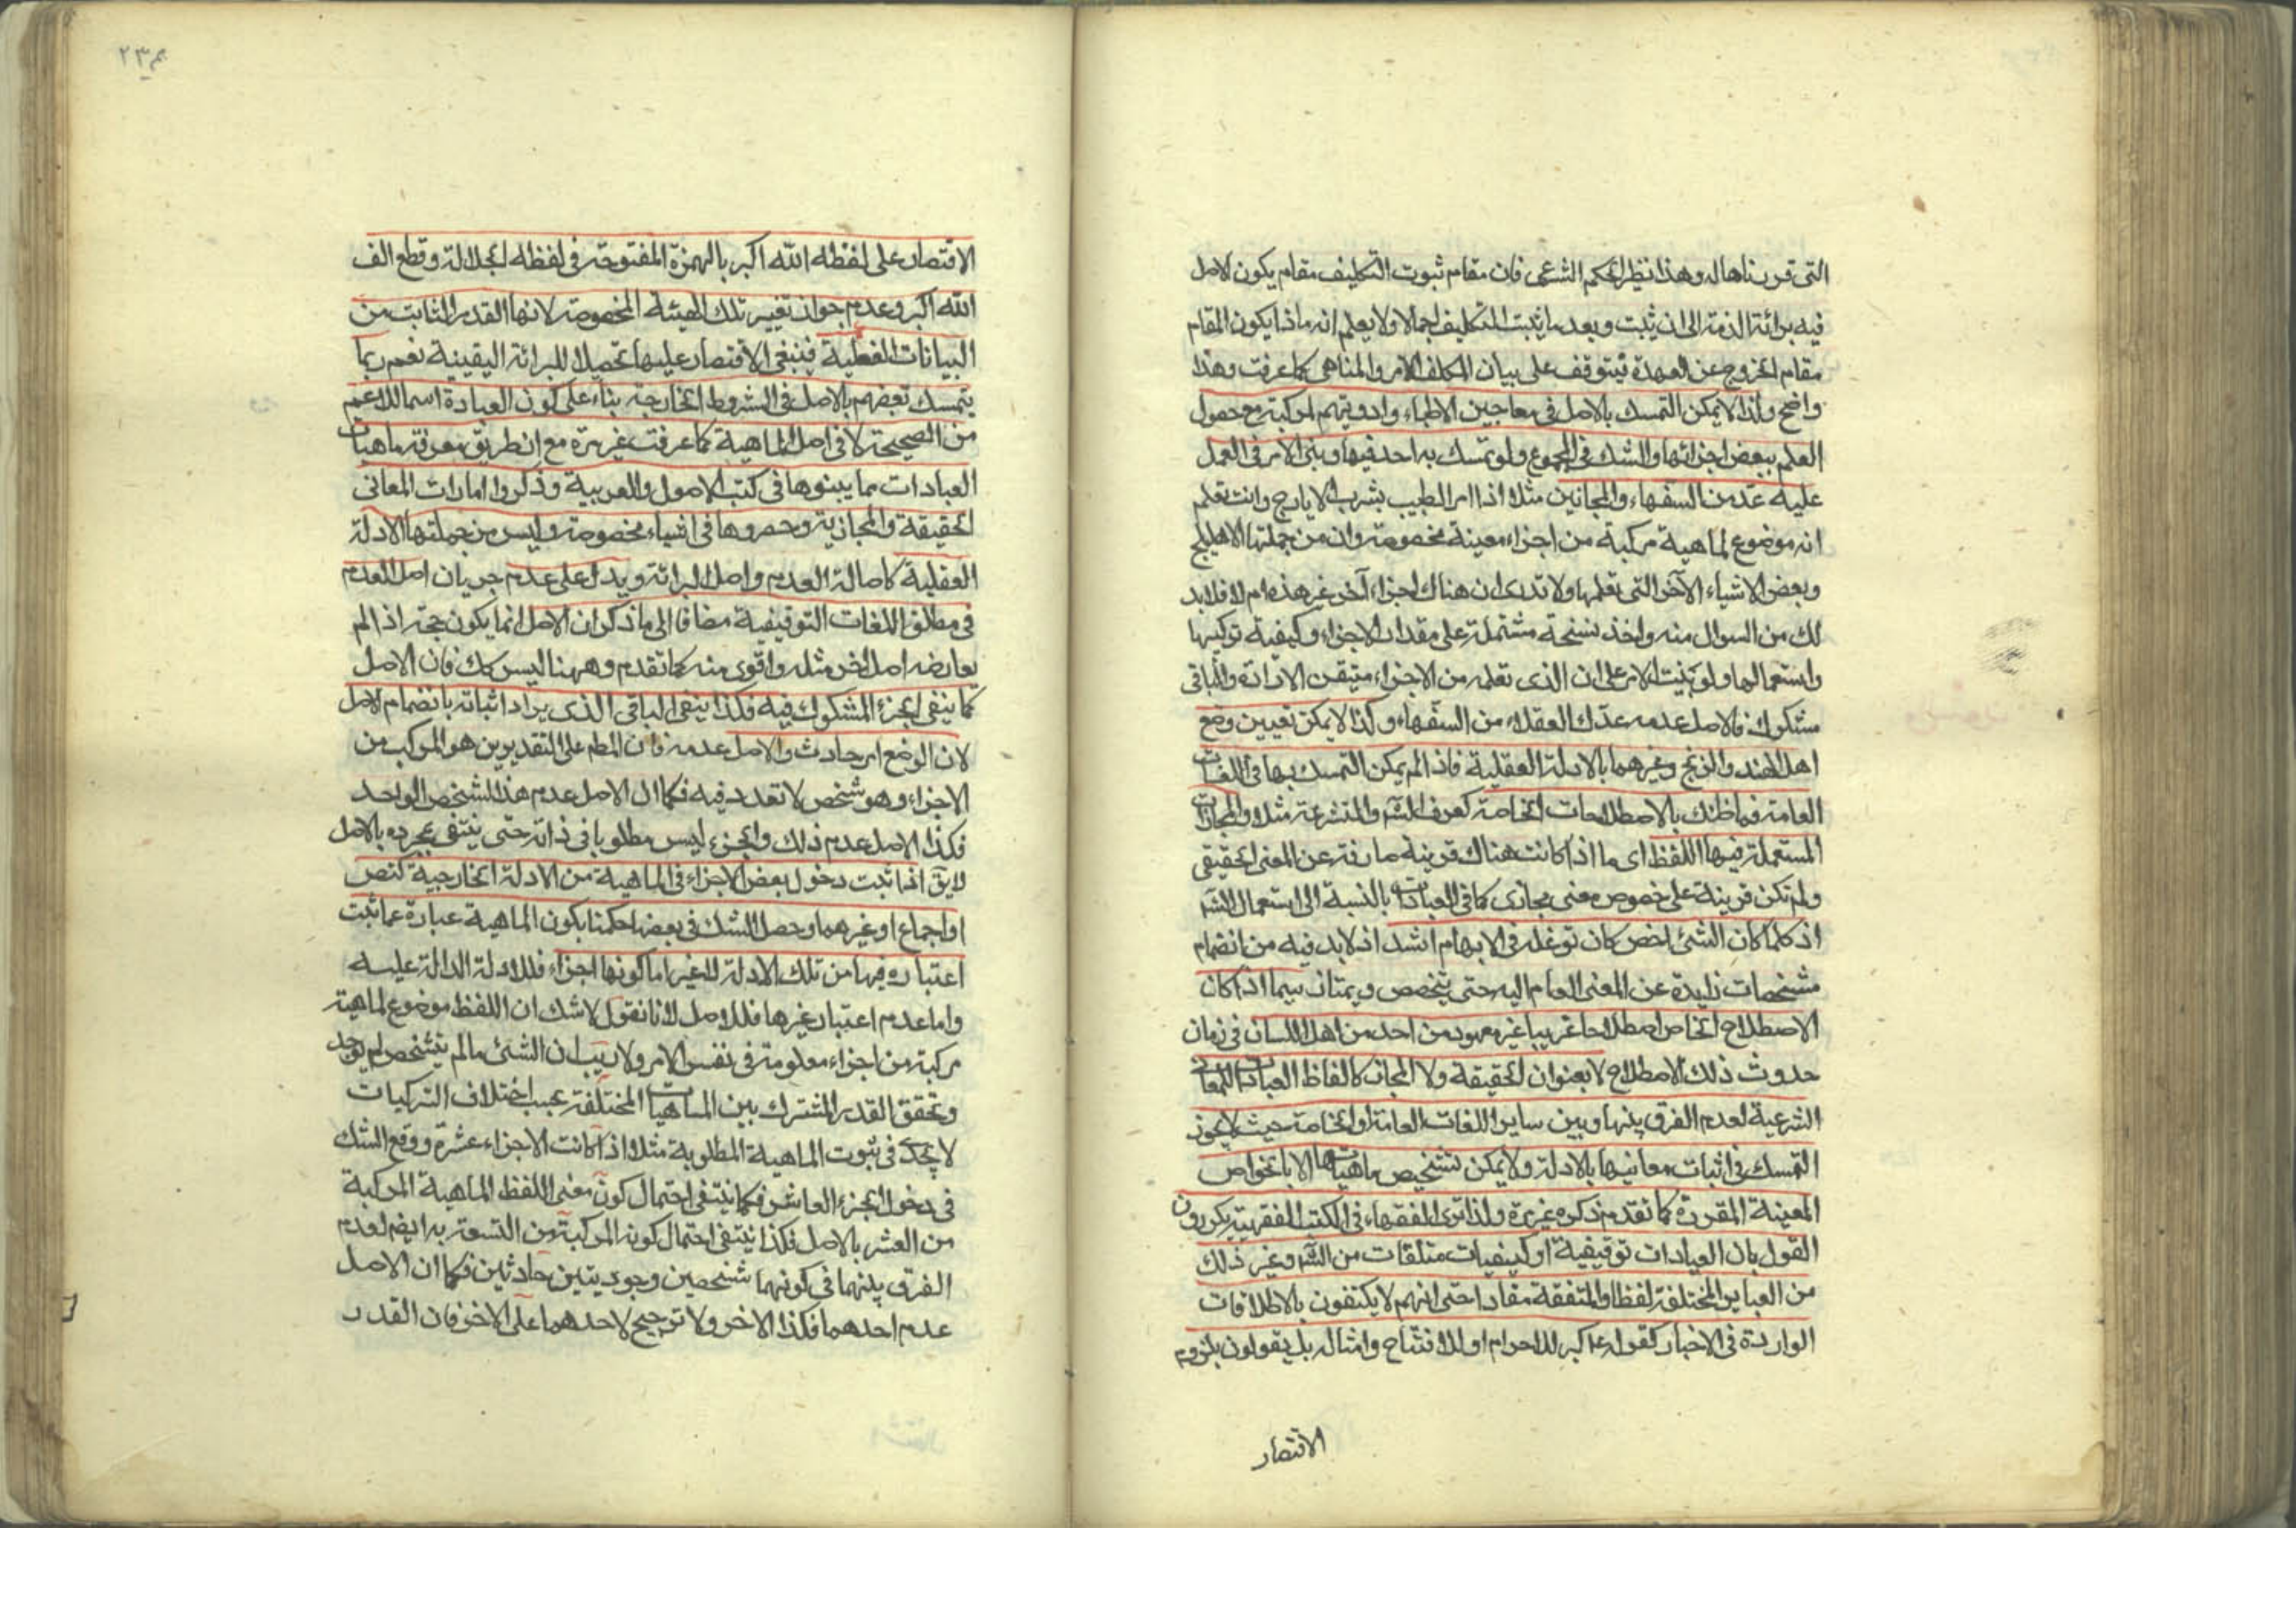 التى قررناها له وهذا نظير الحكم الشرعى فان مقام ثبوت التكليف مقام يكون الاصل
فيه برائة الذمة الى ان يثبت وبعد ما يثبت التكليف اجمالا ولا يعلم انه ماذا يكون المقام
مقام الخروج عن العهدة فيتوقف على بيان المكلف الامر والمناهى كما عرفت وهذا
واضح ولذا لا يمكن التمسك بالاصل فى معاجين الاطباء وادويتهم المركبة مع حصول
العلم ببعض اجزائها والشك فى المجموع ولو تمسك به احد فيها وبنى الامر فى العمل
عليه عدّ من السفهاء والمجانين مثلا اذا امر الطبيب بشرب الايارج وانت تعلم
انه موضوع لماهية مركبة من اجزاء معينة مخصوصة وان من جملتها الاهليلج
وبعض الاشياء الآخر التى تعلمها ولا تدرى ان هناك اجزاء آخر غير هذه ام لا فلا بد
لك من السوال منه واخذ نسخة مشتملة على مقدار الاجزاء وكيفية تركيبها
واستعمالها ولو بنيت الامر على ان الذى تعلمه من الاجزاء متيقن الارادة والباقى
مشكوك فالاصل عدمه عدّك العقلاء من السفهاء ولذا لا يمكن تعيين وضع
اهل الهند والزنج وغيرهما بالادلة العقلية فاذا لم يمكن التمسك بها فى اللغات
العامة فما ظنك بالاصطلاحات الخاصة كعرف الشر والمتشرعة مثلا والمجازات
المستعملة فيها اللفظ اى ما اذا كانت هناك قرينة صارفة عن المعنى الحقيقى
ولم تكن قرينة على خصوص معنى مجازى كما فى العبادات بالنسبة الى استعمال الشر
اذ كلما كان الشئ اخص كان توغله فى الابهام اشد اذ لا بد فيه من انضمام
مشخصات زايدة عن المعنى العام اليه حتى يتخصص ويمتاز سيما اذا كان
الاصطلاح الخاص اصطلاحا غريبا غير معهود من احد من اهل اللسان فى زمان
حدوث ذلك الاصطلاح لا بعنوان الحقيقة ولا المجاز كالفاظ العبادات للمعانى
الشرعية لعدم الفرق بينها وبين ساير اللغات العامة او الخاصة حيث لا يجوز
التمسك فى اثبات معانيها بالادلة ولا يمكن تشخيص ماهياتها الا بالخواص
المعينة المقررة كما تقدم ذكره غير مرة ولذا ترى الفقهاء فى الكتب الفقهية يكررون
القول بان العبادات توقيفية او كيفيات متلقات من الشر وغير ذلك
من العباير المختلفة لفظا والمتفقة مفادا حتى انهم لا يكتفون بالاطلاقات
الواردة فى الاخبار كقوله ع كبر للاحرام او للافتتاح وامثاله بل يقولون بلزوم
الاقتصار
٢٣م
الاقتصار على لفظه الله اكبر بالهمزة المفتوحة فى لفظه الجلالة وقطع الف
الله اكبر وعدم جواز تغيير تلك الهيئة المخصوصة لانها القدر الثابت من
البيانات الفعلية فينبغى الاقتصار عليها تحصيلا للبرائة اليقينية نعم ربما
يتمسك بعضهم بالاصل فى الشروط الخارجة بناء على كون العبادة اسما للاعم
من الصحيحة لا فى اصل الماهية كما عرفت غير مرة مع ان طريق معرفة ماهيات
العبادات مما يبنوها فى كتب الاصول والعربية وذكروا امارات المعانى
الحقيقة والمجازية وحصروها فى اشياء مخصوصة وليس من جملتها الادلة
العقلية كاصالة العدم واصل البرائة ويدل على عدم جريان اصل العدم
فى مطلق اللغات التوقيفية مضافا الى ما ذكر ان الاصل انما يكون حجة اذا لم
يعارضه اصل اخر مثله واقوى منه كما تقدم وههنا ليس كك فان الاصل
كما ينفى الجزء المشكوك فيه فكذا ينفى الباقى الذى يراد اثباته بانضمام الاصل
لان الوضع امر حادث والاصل عدمه فان المطم على التقديرين هو المركب من
الاجزاء وهو شخص لا تعدد فيه فكما ان الاصل عدم هذا الشخص الواحد
فكذا الاصل عدم ذلك والجزء ليس مطلوبا فى ذاته حتى ينتفى بمجرده بالاصل
لا يق اذا ثبت دخول بعض الاجزاء فى الماهية من الادلة الخارجية كنص
او اجماع او غيرهما وحصل الشك فى بعض احكمنا بكون الماهية عبارة عما ثبت
اعتباره فيها من تلك الادلة لا غير اما كونها اجزاء فللادلة الدالة عليه
واما عدم اعتبار غيرها فللاصل لانا نقول لا شك ان اللفظ موضوع لماهية
مركبة من اجزاء معلومة فى نفس الامر ولا ريب ان الشئ ما لم يتشخص لم يوجد
وتحقق القدر المشترك بين الماهيات المختلفة بحسب اختلاف التركيبات
لا يجدى فى ثبوت الماهية المطلوبة مثلا اذا كانت الاجزاء عشرة ووقع الشك
فى دخول الجزء العاشر فكما ينتفى احتمال كون معنى اللفظ الماهية المركبة
من العشر بالاصل فكذا ينتفى احتمال كونه المركبة من التسعة به ايضا لعدم
الفرق بينهما فى كونهما شخصين وجوديتين حادثين فكما ان الاصل
عدم احدهما فكذا الاخر ولا ترجيح لاحدهما على الاخر فان القدر